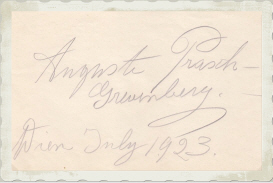 Auguste Prasch-
Grevenberg.
Wien July 1923.